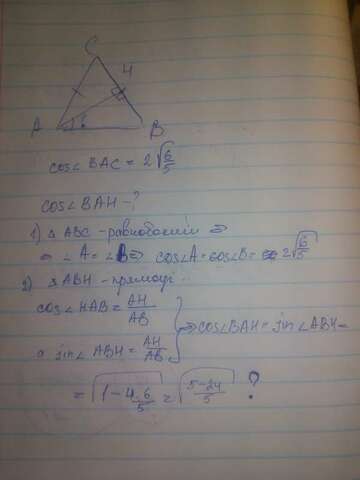 C
H
A
B
cos∠BAC = 2√6/5
cos∠BAH - ?
1) △ABC - равнобедрен ⇒
⇒ ∠A = ∠B ⇒ cos∠A = cos∠B = 2√6/5
2) △ABH - прямоуг.
cos∠HAB = AH/AB
а sin∠ABH = AH/AB } ⇒ cos∠BAH = sin∠ABH =
= √(1 - 4·6/5) = √(5-24/5) ?